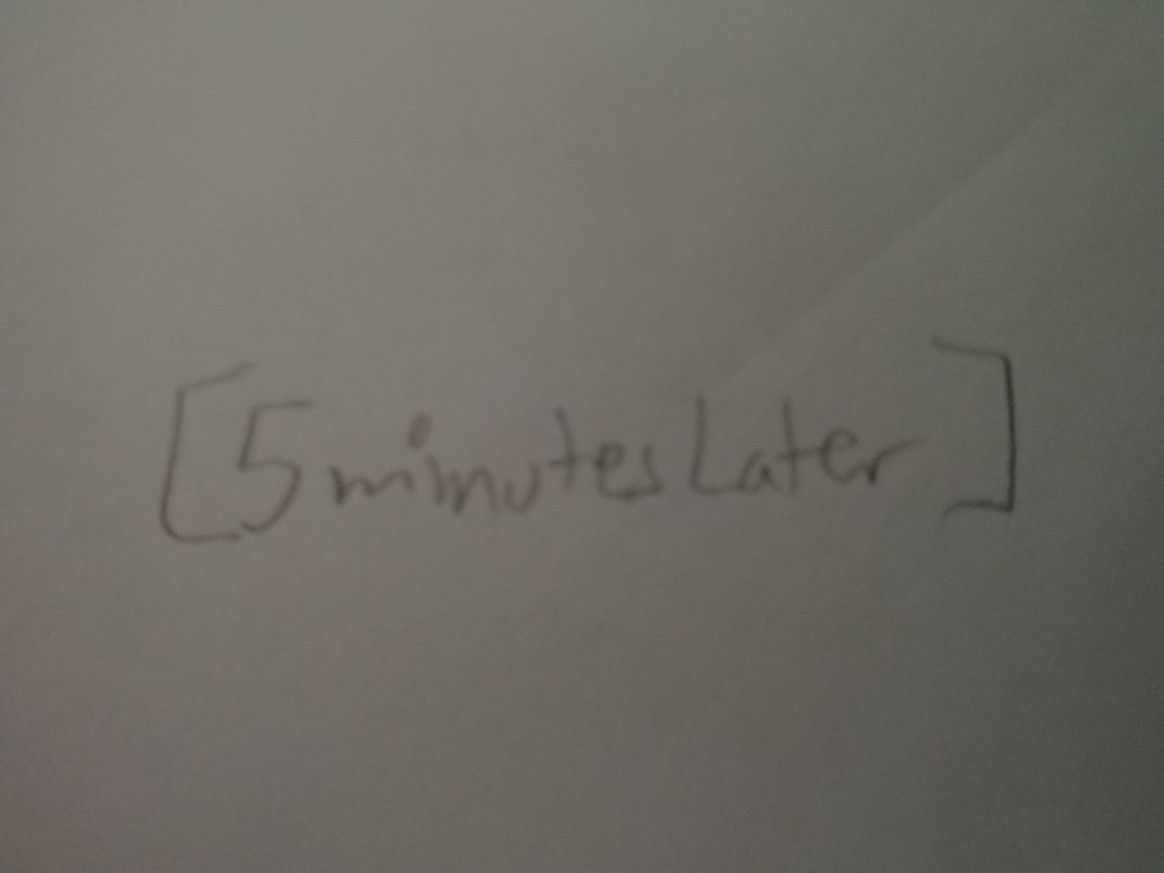 [5 minutes Later]